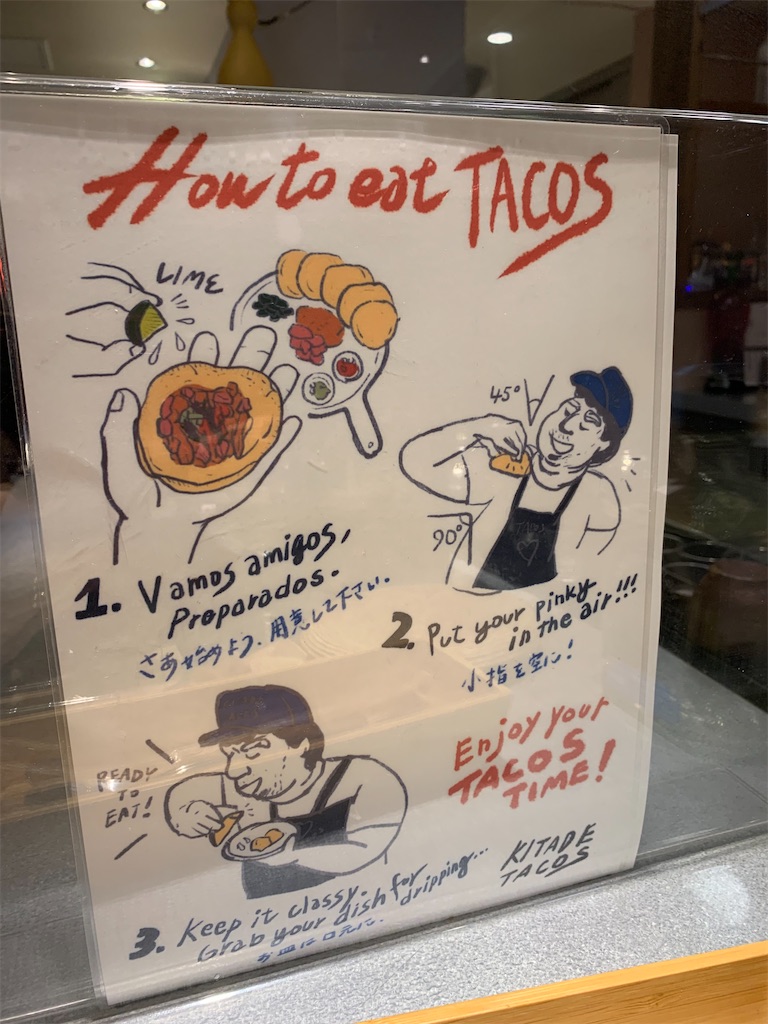 How to eat TACOS
LIME
45°
90°
1. Vamos amigos,
Preparados.
さあ始めよう、用意して下さい。
2. Put your pinky
in the air!!!
小指を空に!
READY
TO
EAT!
Enjoy your
TACOS
TIME!
3. Keep it classy.
Grab your dish for
dripping...
お皿は口元に.
KITADE
TACOS